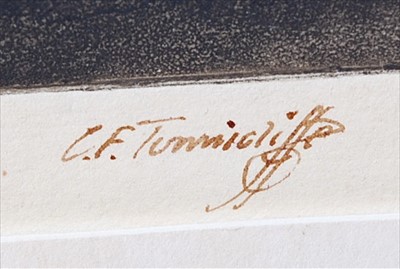 C.F. Tunnicliffe